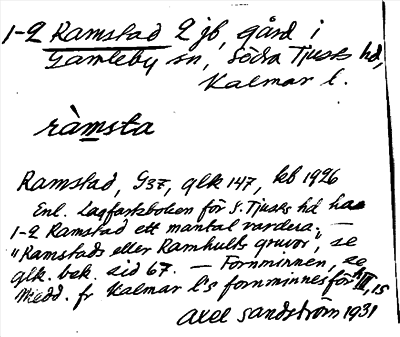 1-2 Ramstad 2 jb, gård i
Gamleby sn, Södra Tjusts hd,
Kalmar l.
ràmsta
Ramstad, G37, glk 147, kb 1926
Enl. Lagfartsboken för S. Tjusts hd har
1-2 Ramstad ett mantal vardera. —
"Ramstads eller Ramhults gruvor", se
glk. bek. sid 67. — Fornminnen, se
Medd. fr Kalmar l:s fornminnesför III, 15
Axel Sandström 1931